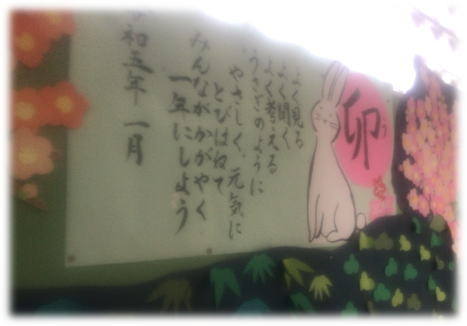 卯
よく見る
よく聞く
よく考える
うさぎのように
やさしく、元気に
とびはねて
みんながかがやく
一年にしよう
令和五年 一月